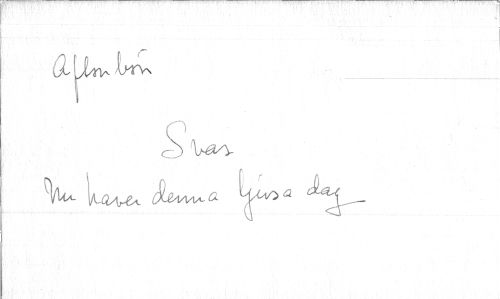 Aftonbön
Svar
Nu haver denna ljusa dag